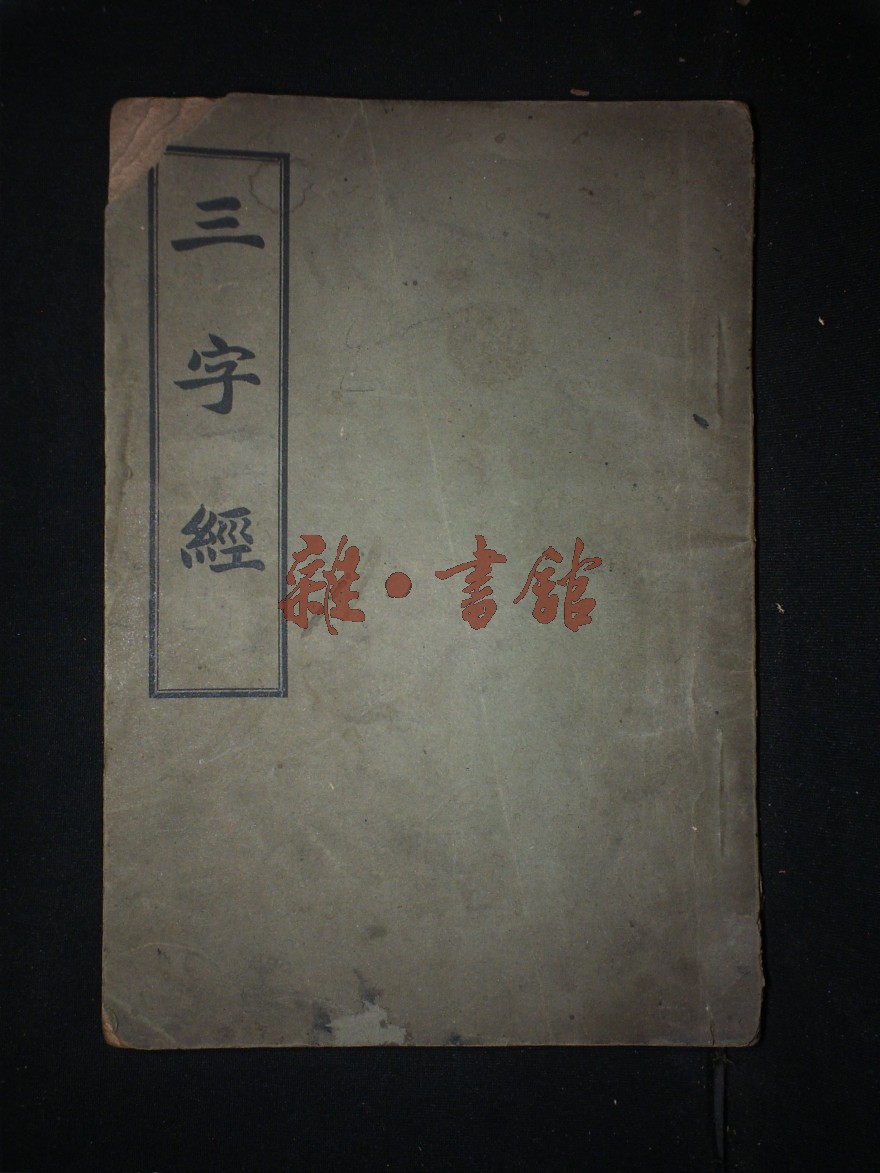 三字經
雜·書館